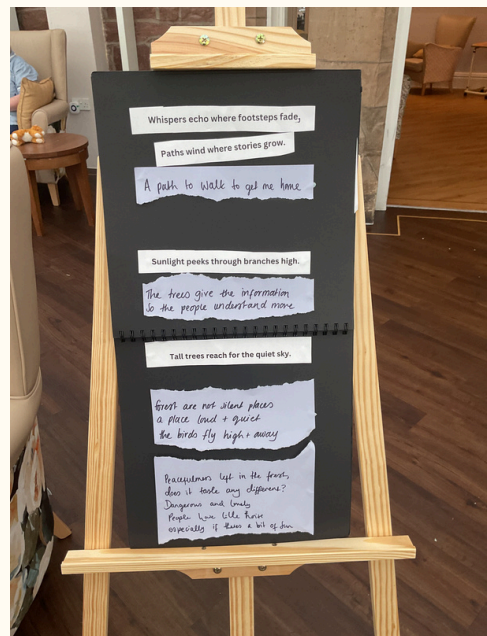 Whispers echo where footsteps fade,
Paths wind where stories grow.
A path to walk to get me home
Sunlight peeks through branches high.
The trees give the information
So the people understand more
Tall trees reach for the quiet sky.
forest are not silent places
a place loud + quiet
the birds fly high + away
Peacefulness left in the forest,
does it taste any different?
Dangerous and lonely
People have little
especially if theres a bit of fun